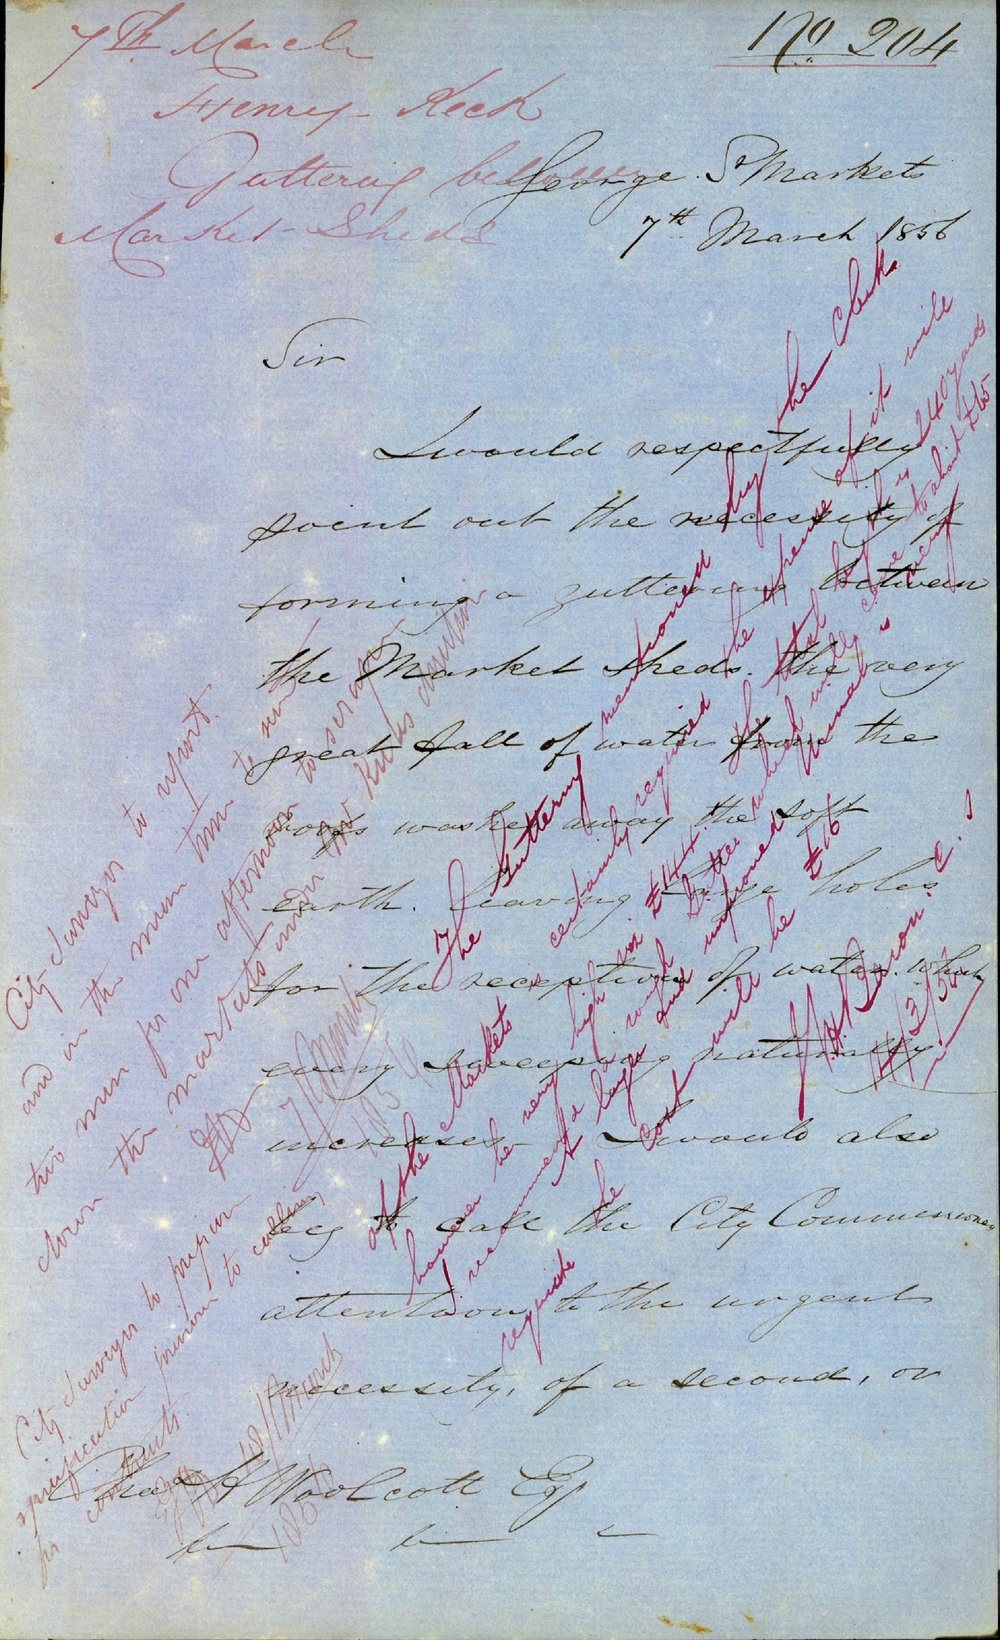 No 204
7th March
Henry Keck
Guttering between
Market Sheds
George St Markets
7th March 1856
Sir
I would respectfully
point out the necessity of
forming a guttering between
the Market Sheds. the very
great fall of water from the
roofs washes away the soft
earth. leaving large holes
for the reception of water. which
every sweeping naturally
increases - I would also
beg to call the City Commissioners
attention to the urgent
necessity, of a second, or
Chas H Woolcott Esq
The Guttering mentioned by the Clerk
of the Markets is certainly required the expense of it will
however be very high viz £144. The total length is 240 yards
I recommend a rough Gutter which will come to about £65
A larger and improved Urinal is being
requisite the cost will be £16
City Surveyor to report
and in the mean time to send
two men for one afternoon to scrape
down the markets under Mr Keck's direction
7 March
1856
City Surveyor to prepare
specification previous to calling
for contracts.
18 March
1856